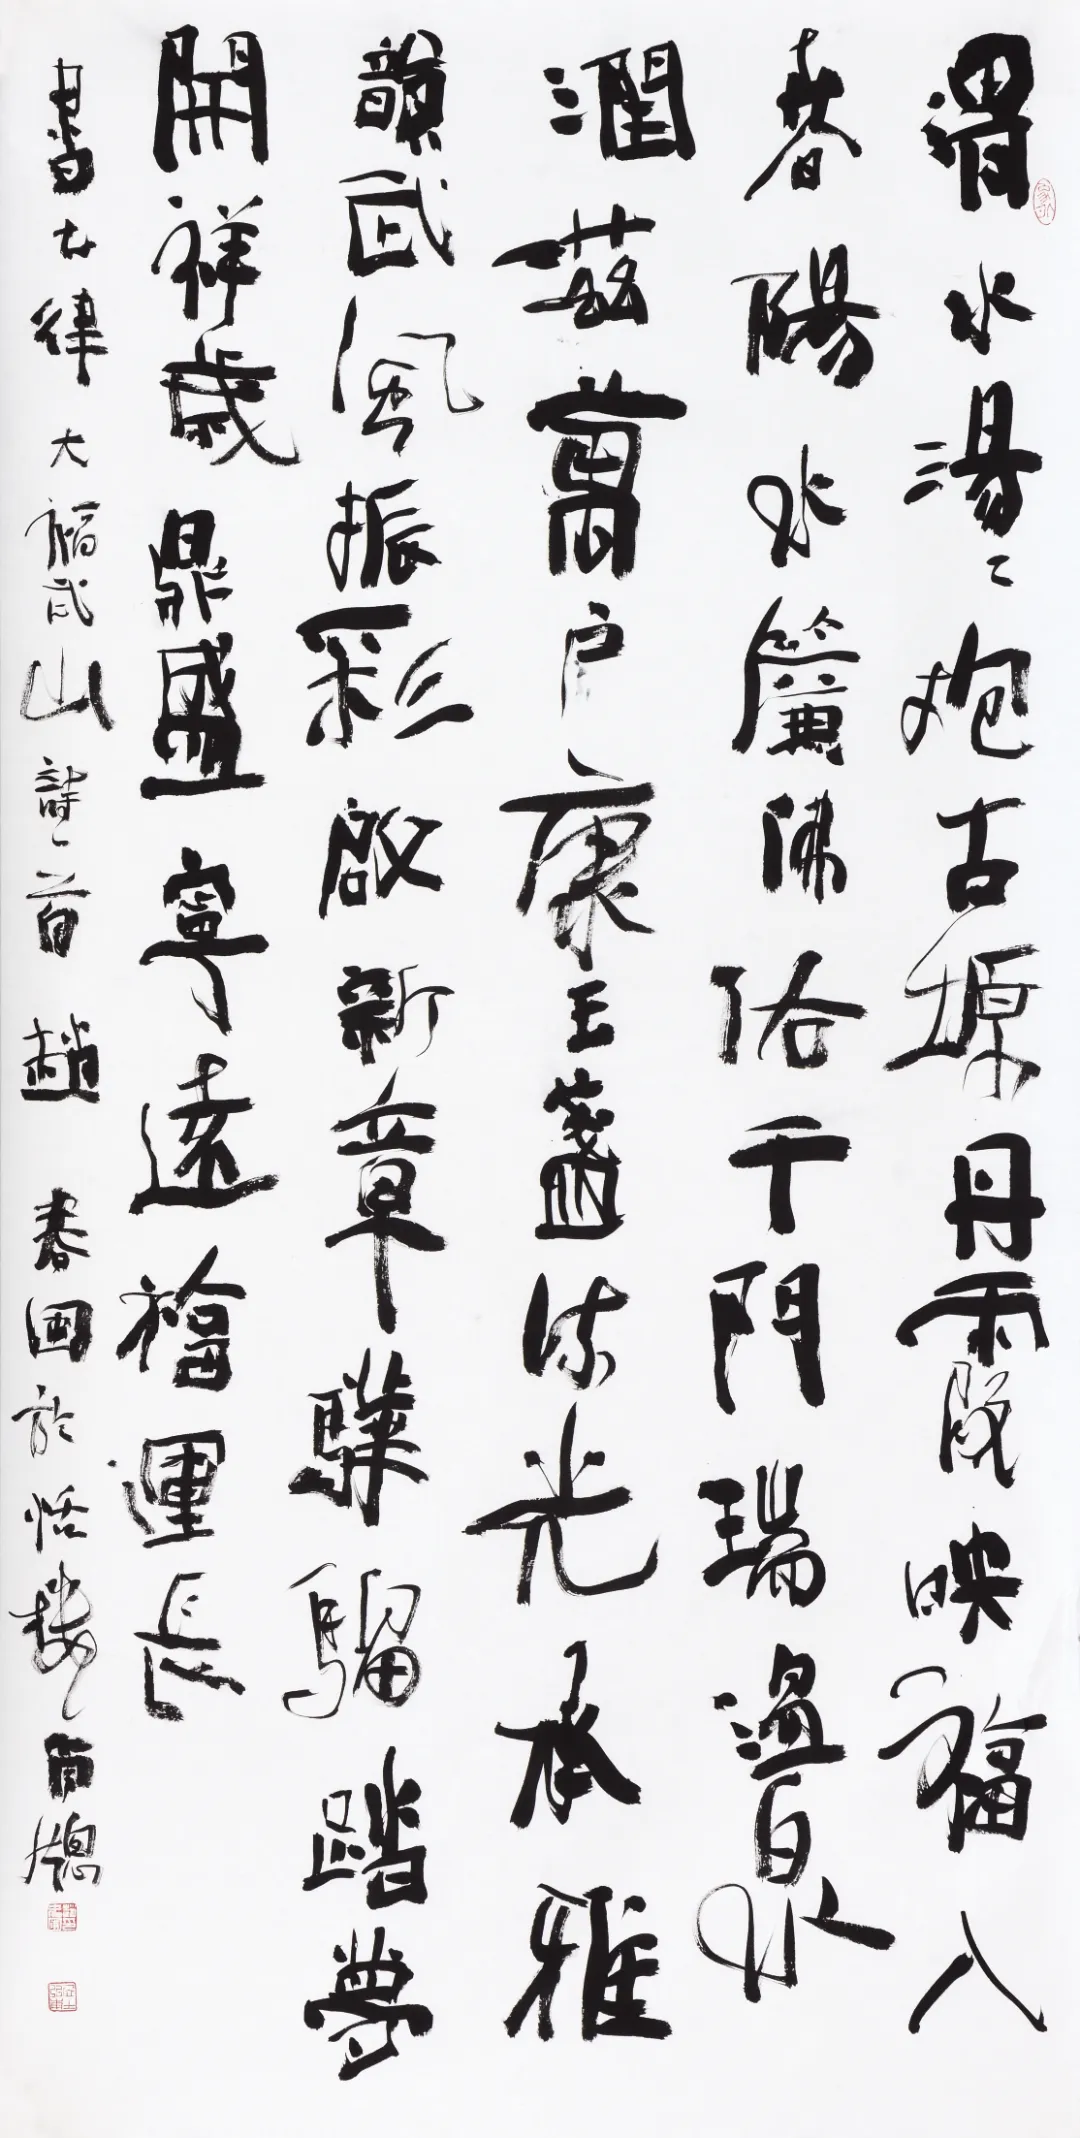 渭水湯〻抱古塬丹霞映福入
春陽水簾佛佑千門瑞溫泉
潤茲萬戶康玉盞流光承雅
韻武風振彩啟新章驊騮踏夢
開祥歲鼎盛寧遠福運長
書七律大福武山詩一首趙春國於恬樓南牕